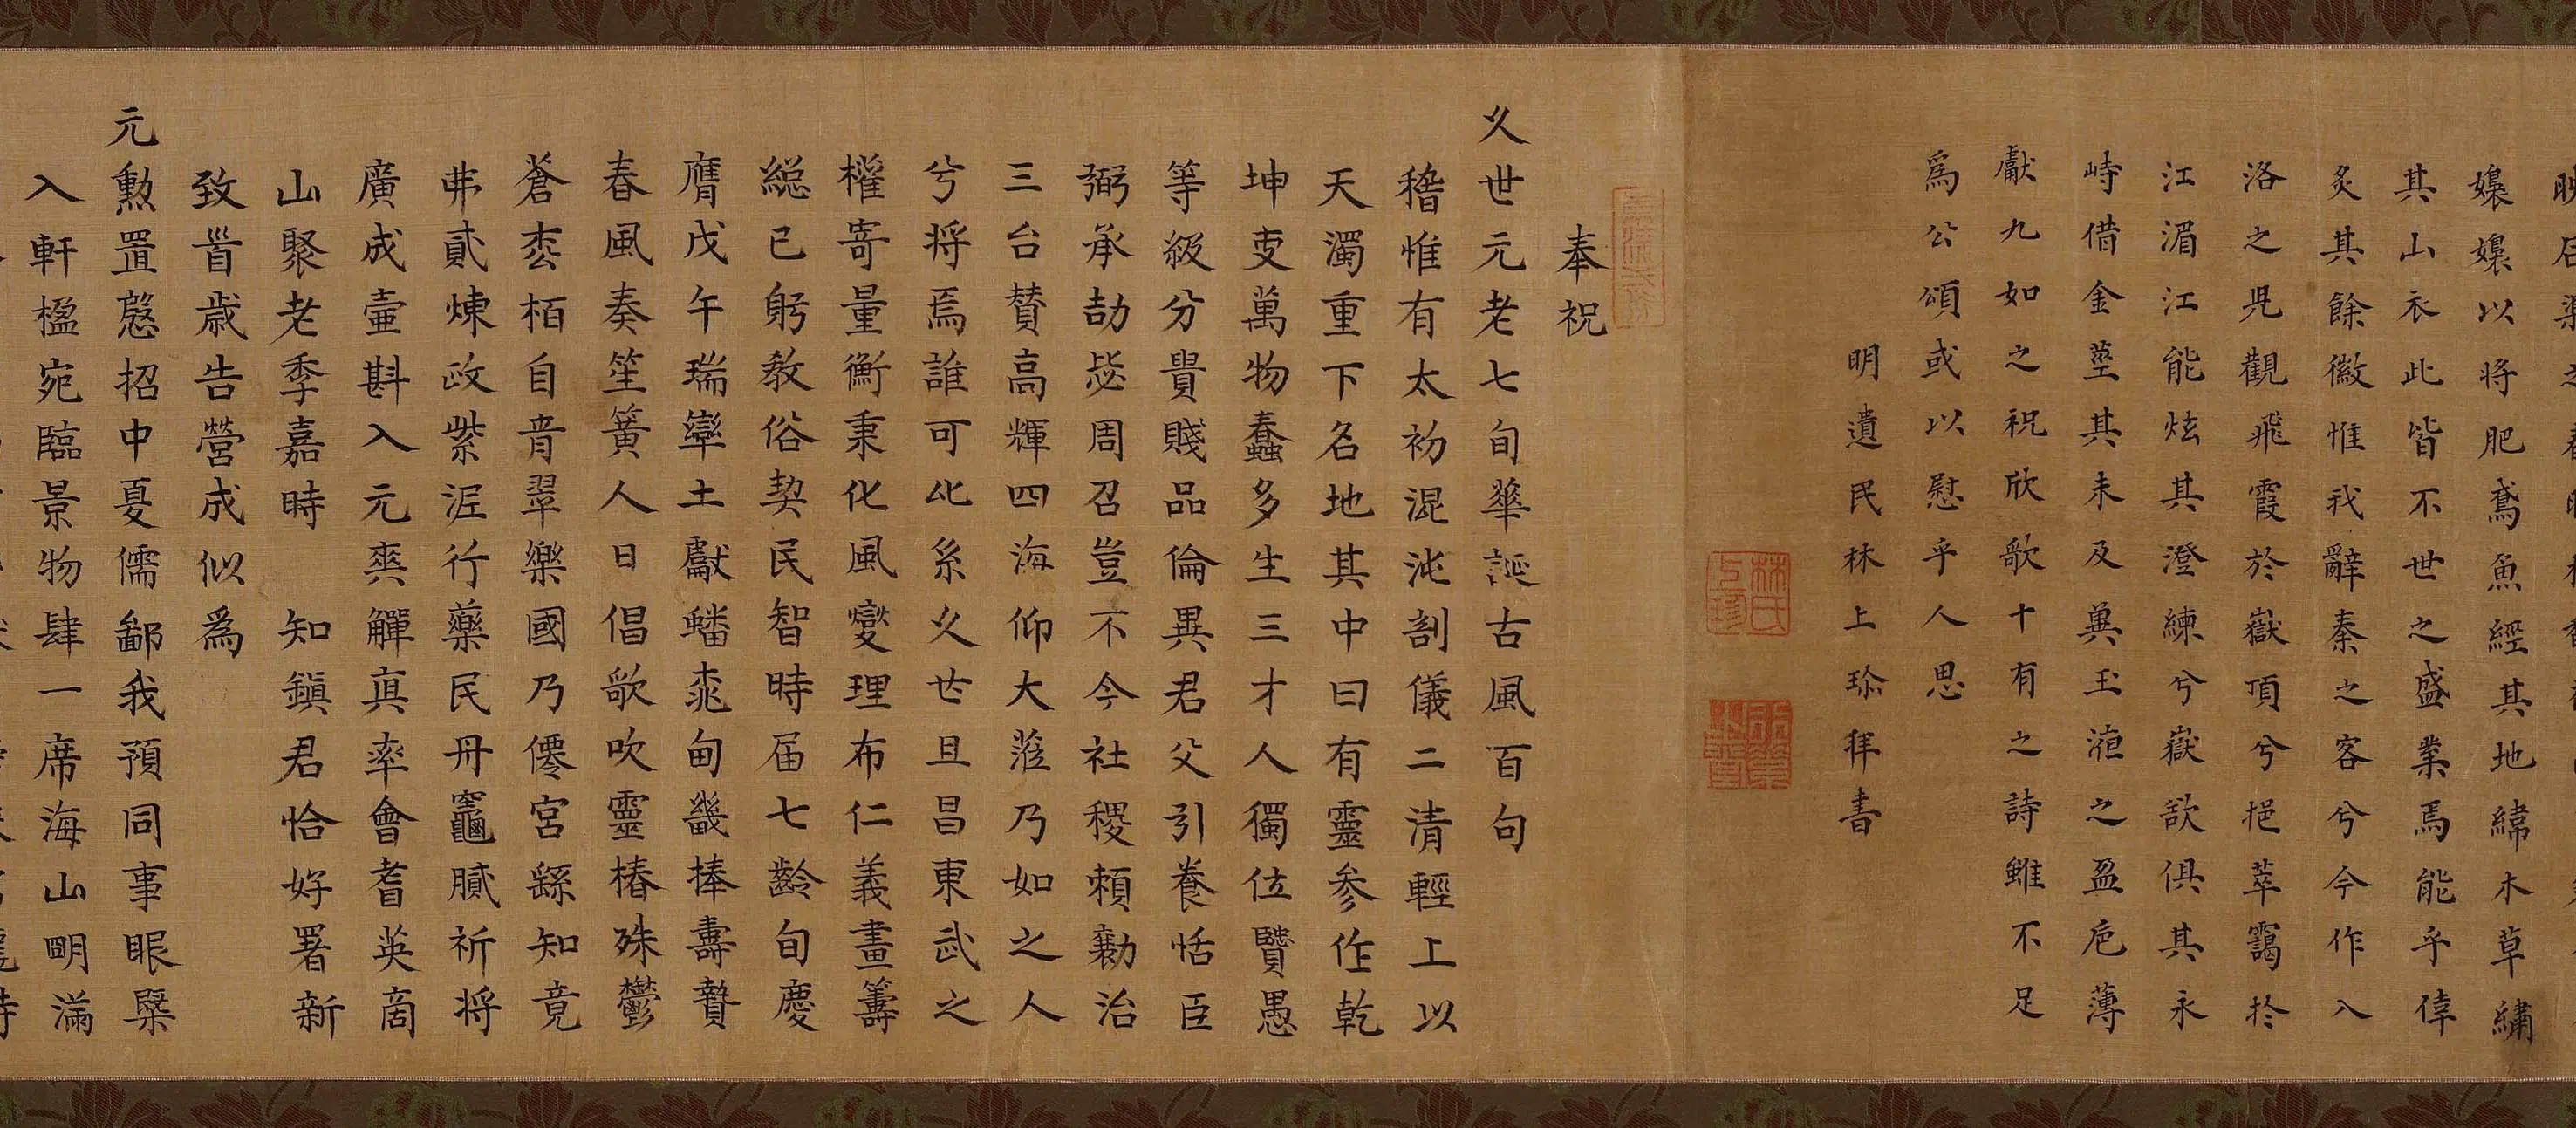 嬝嬝以將肥鳶魚經其地緯木草繡
其山衣此皆不世之盛業焉能乎倖
炙其餘徽惟我辭秦之客兮今作入
洛之見觀飛霞於嶽頂兮挹萃靄於
江湄江能炫其澄練兮嶽欲俱其永
峙借金莖其未及冀玉液之盈卮薄
獻九如之祝欣歌十有之詩雖不足
為公頌或以慰乎人思
明遺民林上珍拜書
林氏上珍
奉祝
久世元老七旬華誕古風百句
稽惟有太初混沌剖儀二清輕上以
天濁重下名地其中曰有靈参作乾
坤吏萬物蠢多生三才人獨位賢愚
等級分貴賤品倫異君父引養恬臣
弼承劼毖周召豈不今社稷賴勷治
三台賛高輝四海仰大蒞乃如之人
兮将焉誰可比系久世且昌東武之
權寄量衡秉化風燮理布仁義畫籌
総已躬教俗契民智時届七齡旬慶
膺戊午瑞率土獻蟠桃甸畿捧壽贄
春風奏笙簧人日倡歌吹靈椿殊鬱
蒼松栢自音翠樂國乃僊宮繇知竟
弗貳煉政紫泥行藥民丹竈膩祈将
廣成壷斟入元爽觶真率會耆英商
山聚老季嘉時 知鎮君恰好署新
致首歳告營成似為
元勲置慇招中夏儒鄙我預同事眼槩
入軒楹宛臨景物肆一席海山明滿